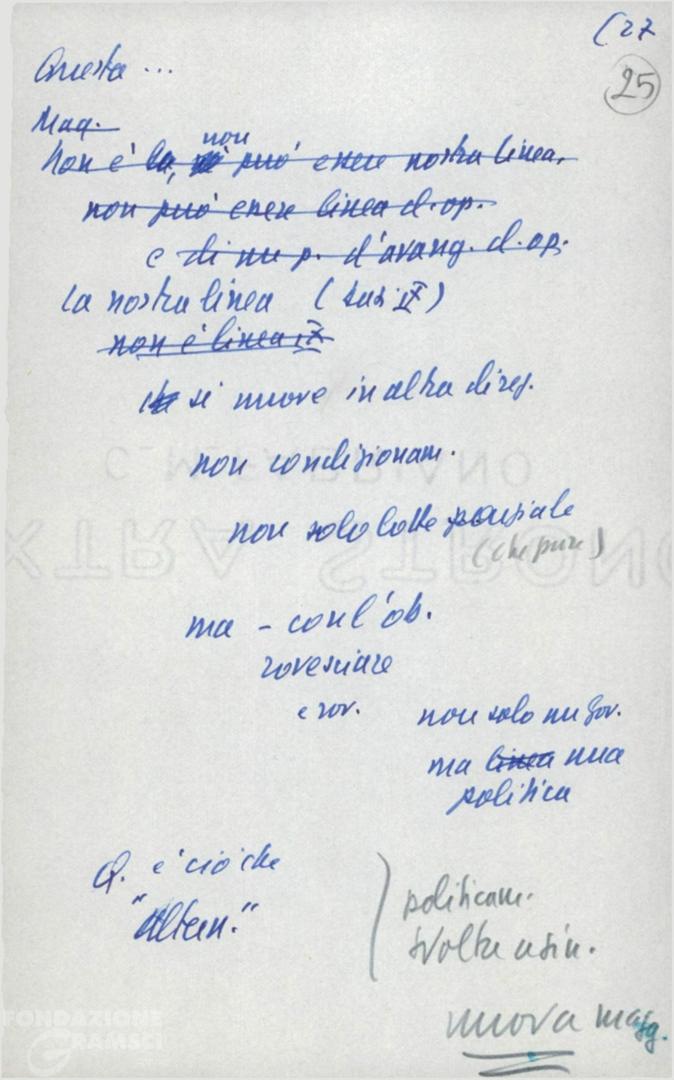 (27
25
Questa ...
Mag.
Non è la, nè non può essere nostra linea,
non può essere linea d. op.
e di un p. d'avang. d. op.
La nostra linea (tesi IX)
non è linea IX
si muove in altra direz.
non condizionam.
non solo lotte parziale
(che pure)
ma - con l'ob.
rovesciare
e rov.
non solo un gov.
ma linea una
politica
Q. è ciò che
"altern."
politicam.
svolta a sin.
nuova magg.
EXTRA STRONG
FONDAZIONE
GRAMSCI